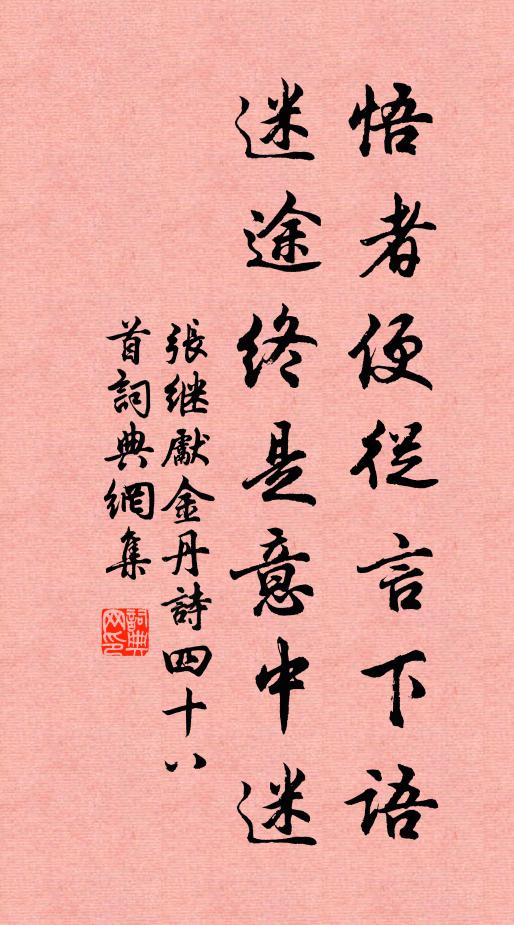 悟者便從言下語
迷途終是意中迷
張继獻金丹詩四十八
首詞典網集
詞典网印